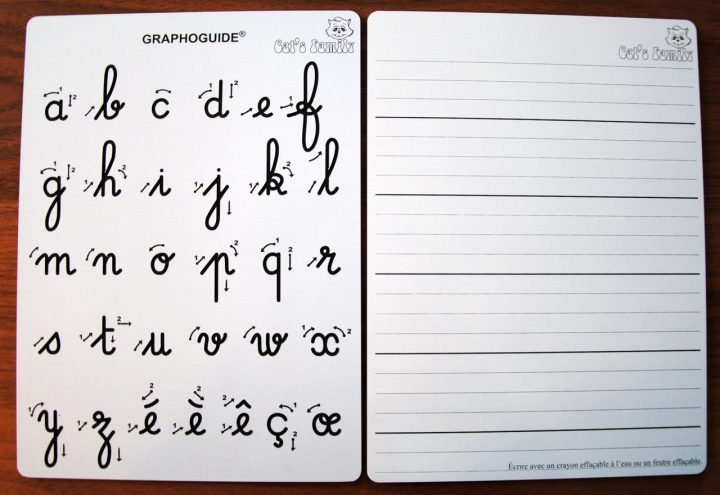 GRAPHOGUIDE®
Cat's Family
a b c d e f
g h i j k l
m n o p q r
s t u v w x
y z é è ê ç œ
Cat's Family
Écrire avec un crayon effaçable à l'eau ou un feutre effaçable.